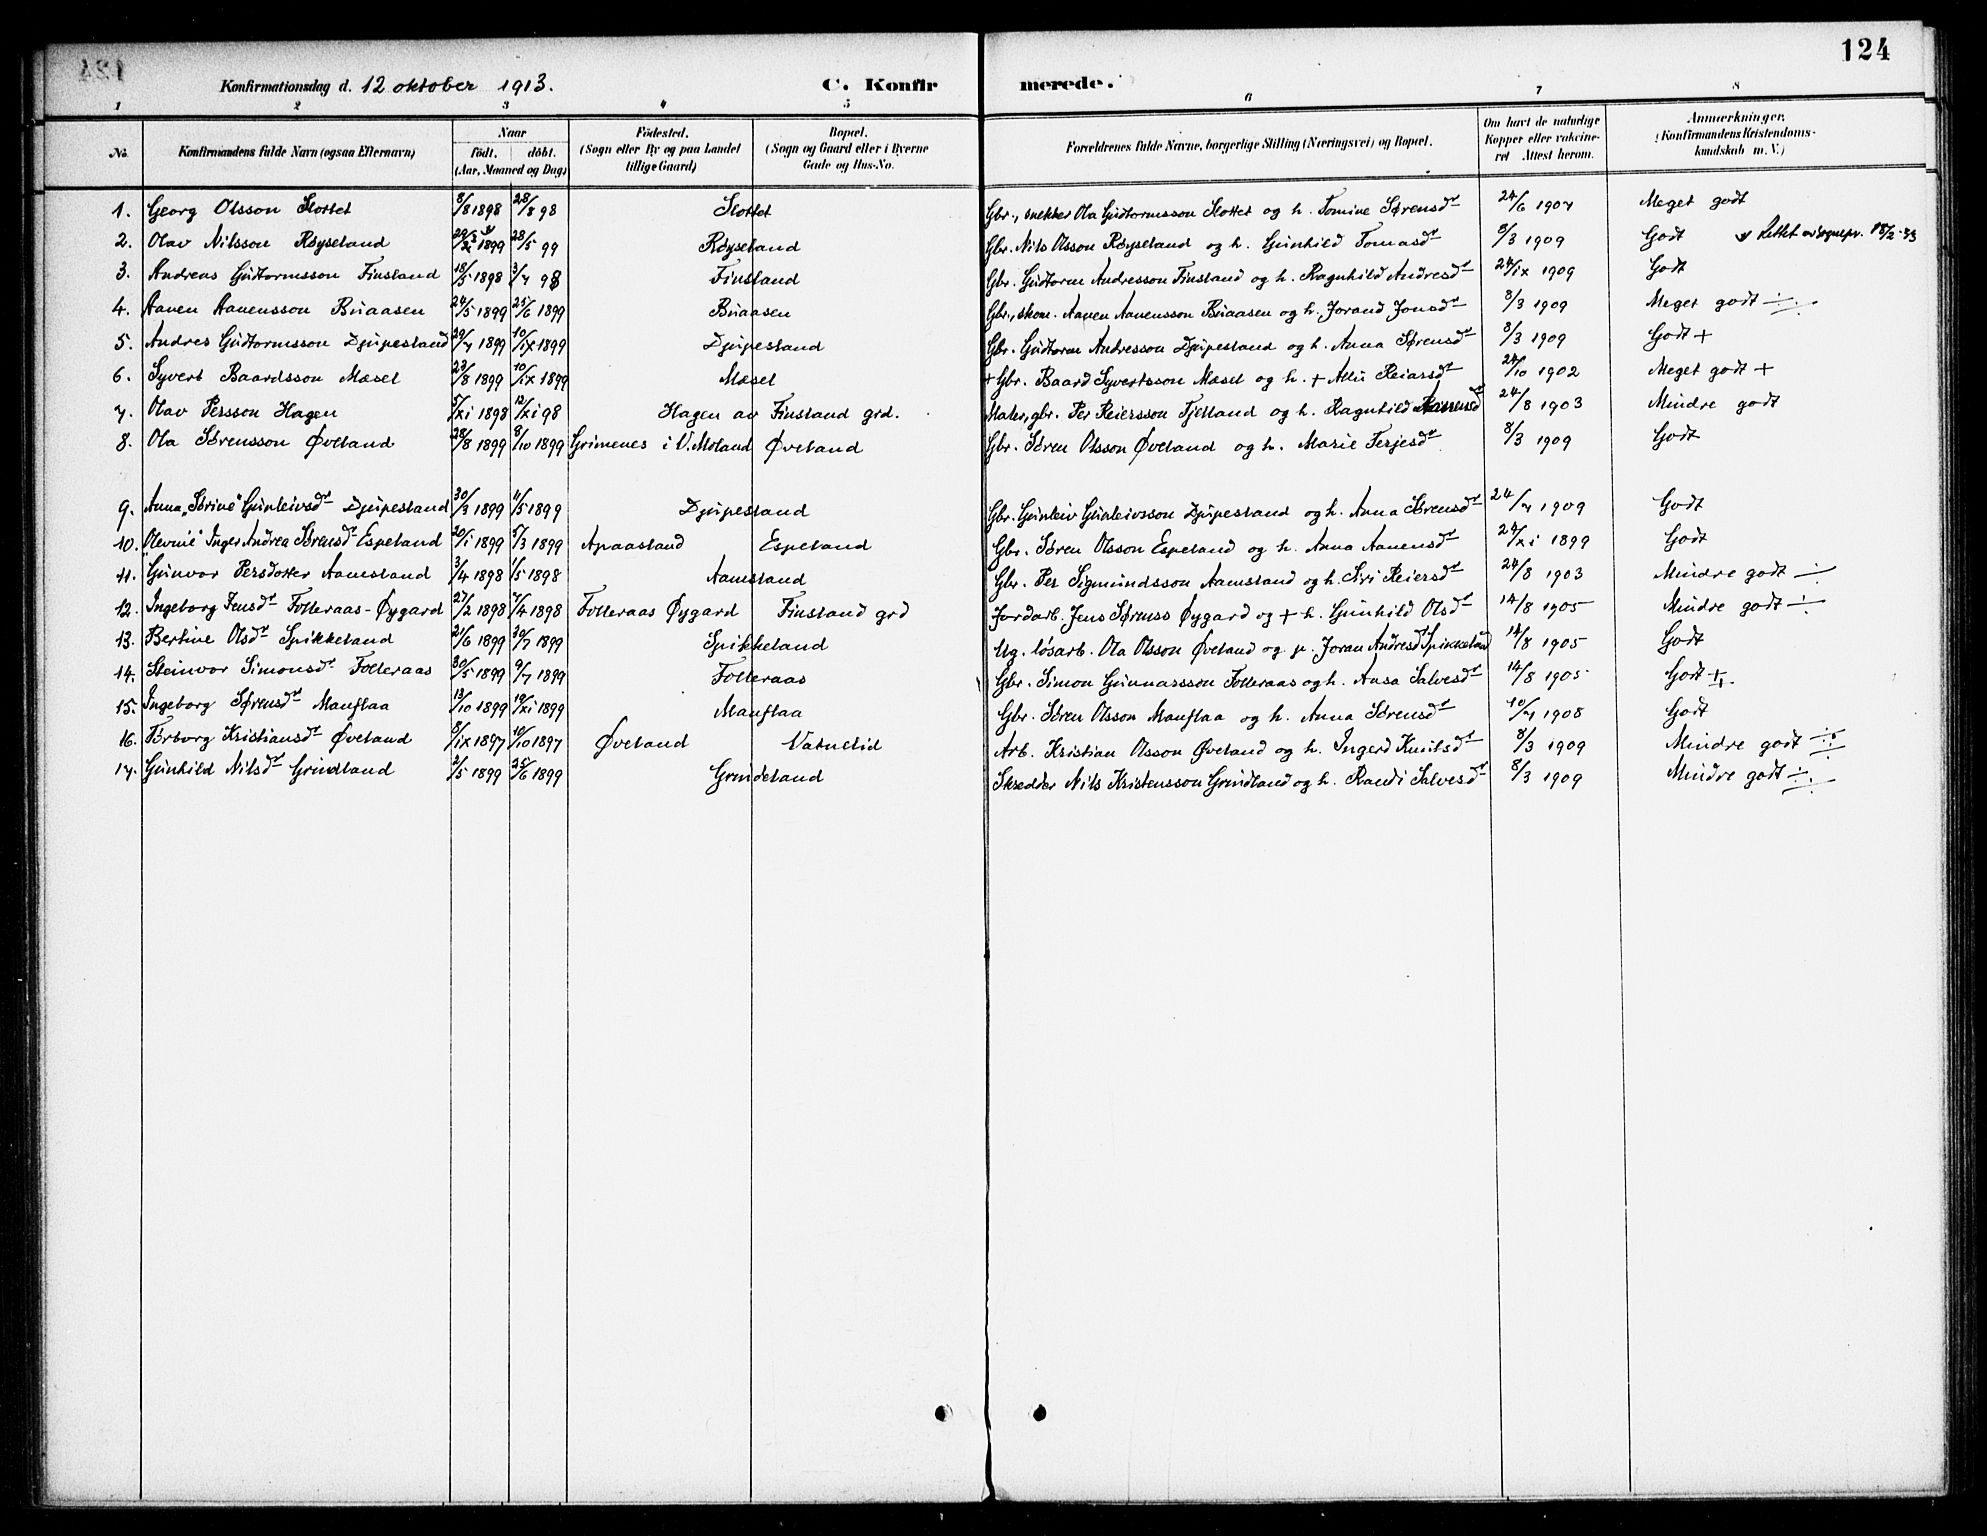 124
Konfirmationsdag d. 12 oktober 1913.
C. Konfirmerede.
1 2 3 4 5 6 7 8
No. Konfirmandens fulde Navn (ogsaa Efternavn) Naar født. døbt. (Aar, Maaned og Dag) Fødested. (Sogn eller By og paa Landet tillige Gaard) Bopæl. (Sogn og Gaard eller i Byerne Gade og Hus-No. Forældrenes fulde Navne, borgerlige Stilling (Næringsvei) og Bopæl. Om havt de naturlige Kopper eller vakcineret Attest herom. Anmærkninger. (Konfirmandens Kristendomskundskab m. V.)
1. Georg Olsson Slottet 8/8 1898 28/8 98 Slottet Gbr., snekker Ola Gudtormsson Slottet og h. Tomine Sørensdt 24/6 1907 Meget godt
2. Olav Nilsson Røyseland 1899 28/5 99 Røyseland Gbr. Nils Olsson Røyseland og h. Gunhild Tomasdt 8/3 1909 Godt Rettet av sognepr. 18/2-43
3. Andreas Gudtormsson Finsland 18/5 1898 3/7 98 Finsland Gbr. Gudtorm Andresson Finsland og h. Ragnhild Andresdt 24/ix 1909 Godt
4. Aanen Aanensson Buaasen 24/5 1899 25/6 1899 Buaasen Gbr., skom. Aanen Aanensson Buaasen og h. Jorand Jonsdt 8/3 1909 Meget godt ÷
5. Andres Gudtormsson Djupesland 29/7 1899 10/ix 1899 Djupesland Gbr. Gudtorm Andresson Djupesland og h. Anna Sørensdt 8/3 1909 Godt +
6. Syvert Baardsson Mæsel 23/8 1899 10/ix 1899 Mæsel + Gbr. Baard Syvertsson Mæsel og h. + Reiarsdt 24/10 1902 Meget godt +
7. Olav Persson Hagen 5/xi 1898 12/xi 98 Hagen av Finsland grd. Maler, gbr. Per Reiersson Fjelland og h. Ragnhild 24/8 1903 Mindre godt
8. Ola Sørensson Øveland 28/8 1899 8/10 1899 Grimenes i V. Moland Øveland Gbr. Søren Olsson Øveland og h. Marie Terjesdt 8/3 1909 Godt
9. Anna "Sørine" Gunleivsdt Djupesland 30/3 1899 11/5 1899 Djupesland Gbr. Gunleiv Gunleivsson Djupesland og h. Anna Sørensdt 24/7 1909 Godt
10. "Olevine" Inger Andrea Sørensdt Espeland 20/1 1899 5/3 1899 Apaasland Espeland Gbr. Søren Olsson Espeland og h. Anna Aanensdt 24/xi 1899 Godt
11. Gunvor Persdotter Aamsland 3/4 1898 1/5 1898 Aamsland Gbr. Per Sigmundsson Aamsland og h. Siri Reiersdt 24/8 1903 Mindre godt ÷
12. Ingeborg Jensdt Folleraas-Øygard 27/2 1898 7/4 1898 Folleraas Øygard Finsland grd Jordarb. Jens Sørenss Øygard og + h. Gunhild Olsdt 14/8 1905 Mindre godt ÷
13. Bertine Olsdt Spikkeland 21/6 1899 30/7 1899 Spikkeland Ug. løsarb. Ola Olsson Øveland og p. Joran Andresdt Spikkeland 14/8 1905 Godt
14. Steinvor Simonsdt Folleraas 30/5 1899 9/7 1899 Folleraas Gbr. Simon Gunnarsson Folleraas og h. Aasa Salvesdt 14/8 1905 Godt +
15. Ingeborg Sørensdt Mauflaa 13/10 1899 19/xi 1899 Mauflaa Gbr. Søren Olsson Mauflaa og h. Anna Sørensdt 10/7 1908 Godt
16. Torborg Kristiansdt Øveland 8/ix 1897 10/10 1897 Øveland Vatnelid Arb. Kristian Olsson Øveland og h. Ingerd Knutsdt 8/3 1909 Mindre godt ÷
17. Gunhild Nilsdt Grindland 2/5 1899 25/6 1899 Grindeland Skredder Nils Kristensson Grindland og h. Randi Salvesdt 8/3 1909 Mindre godt ÷